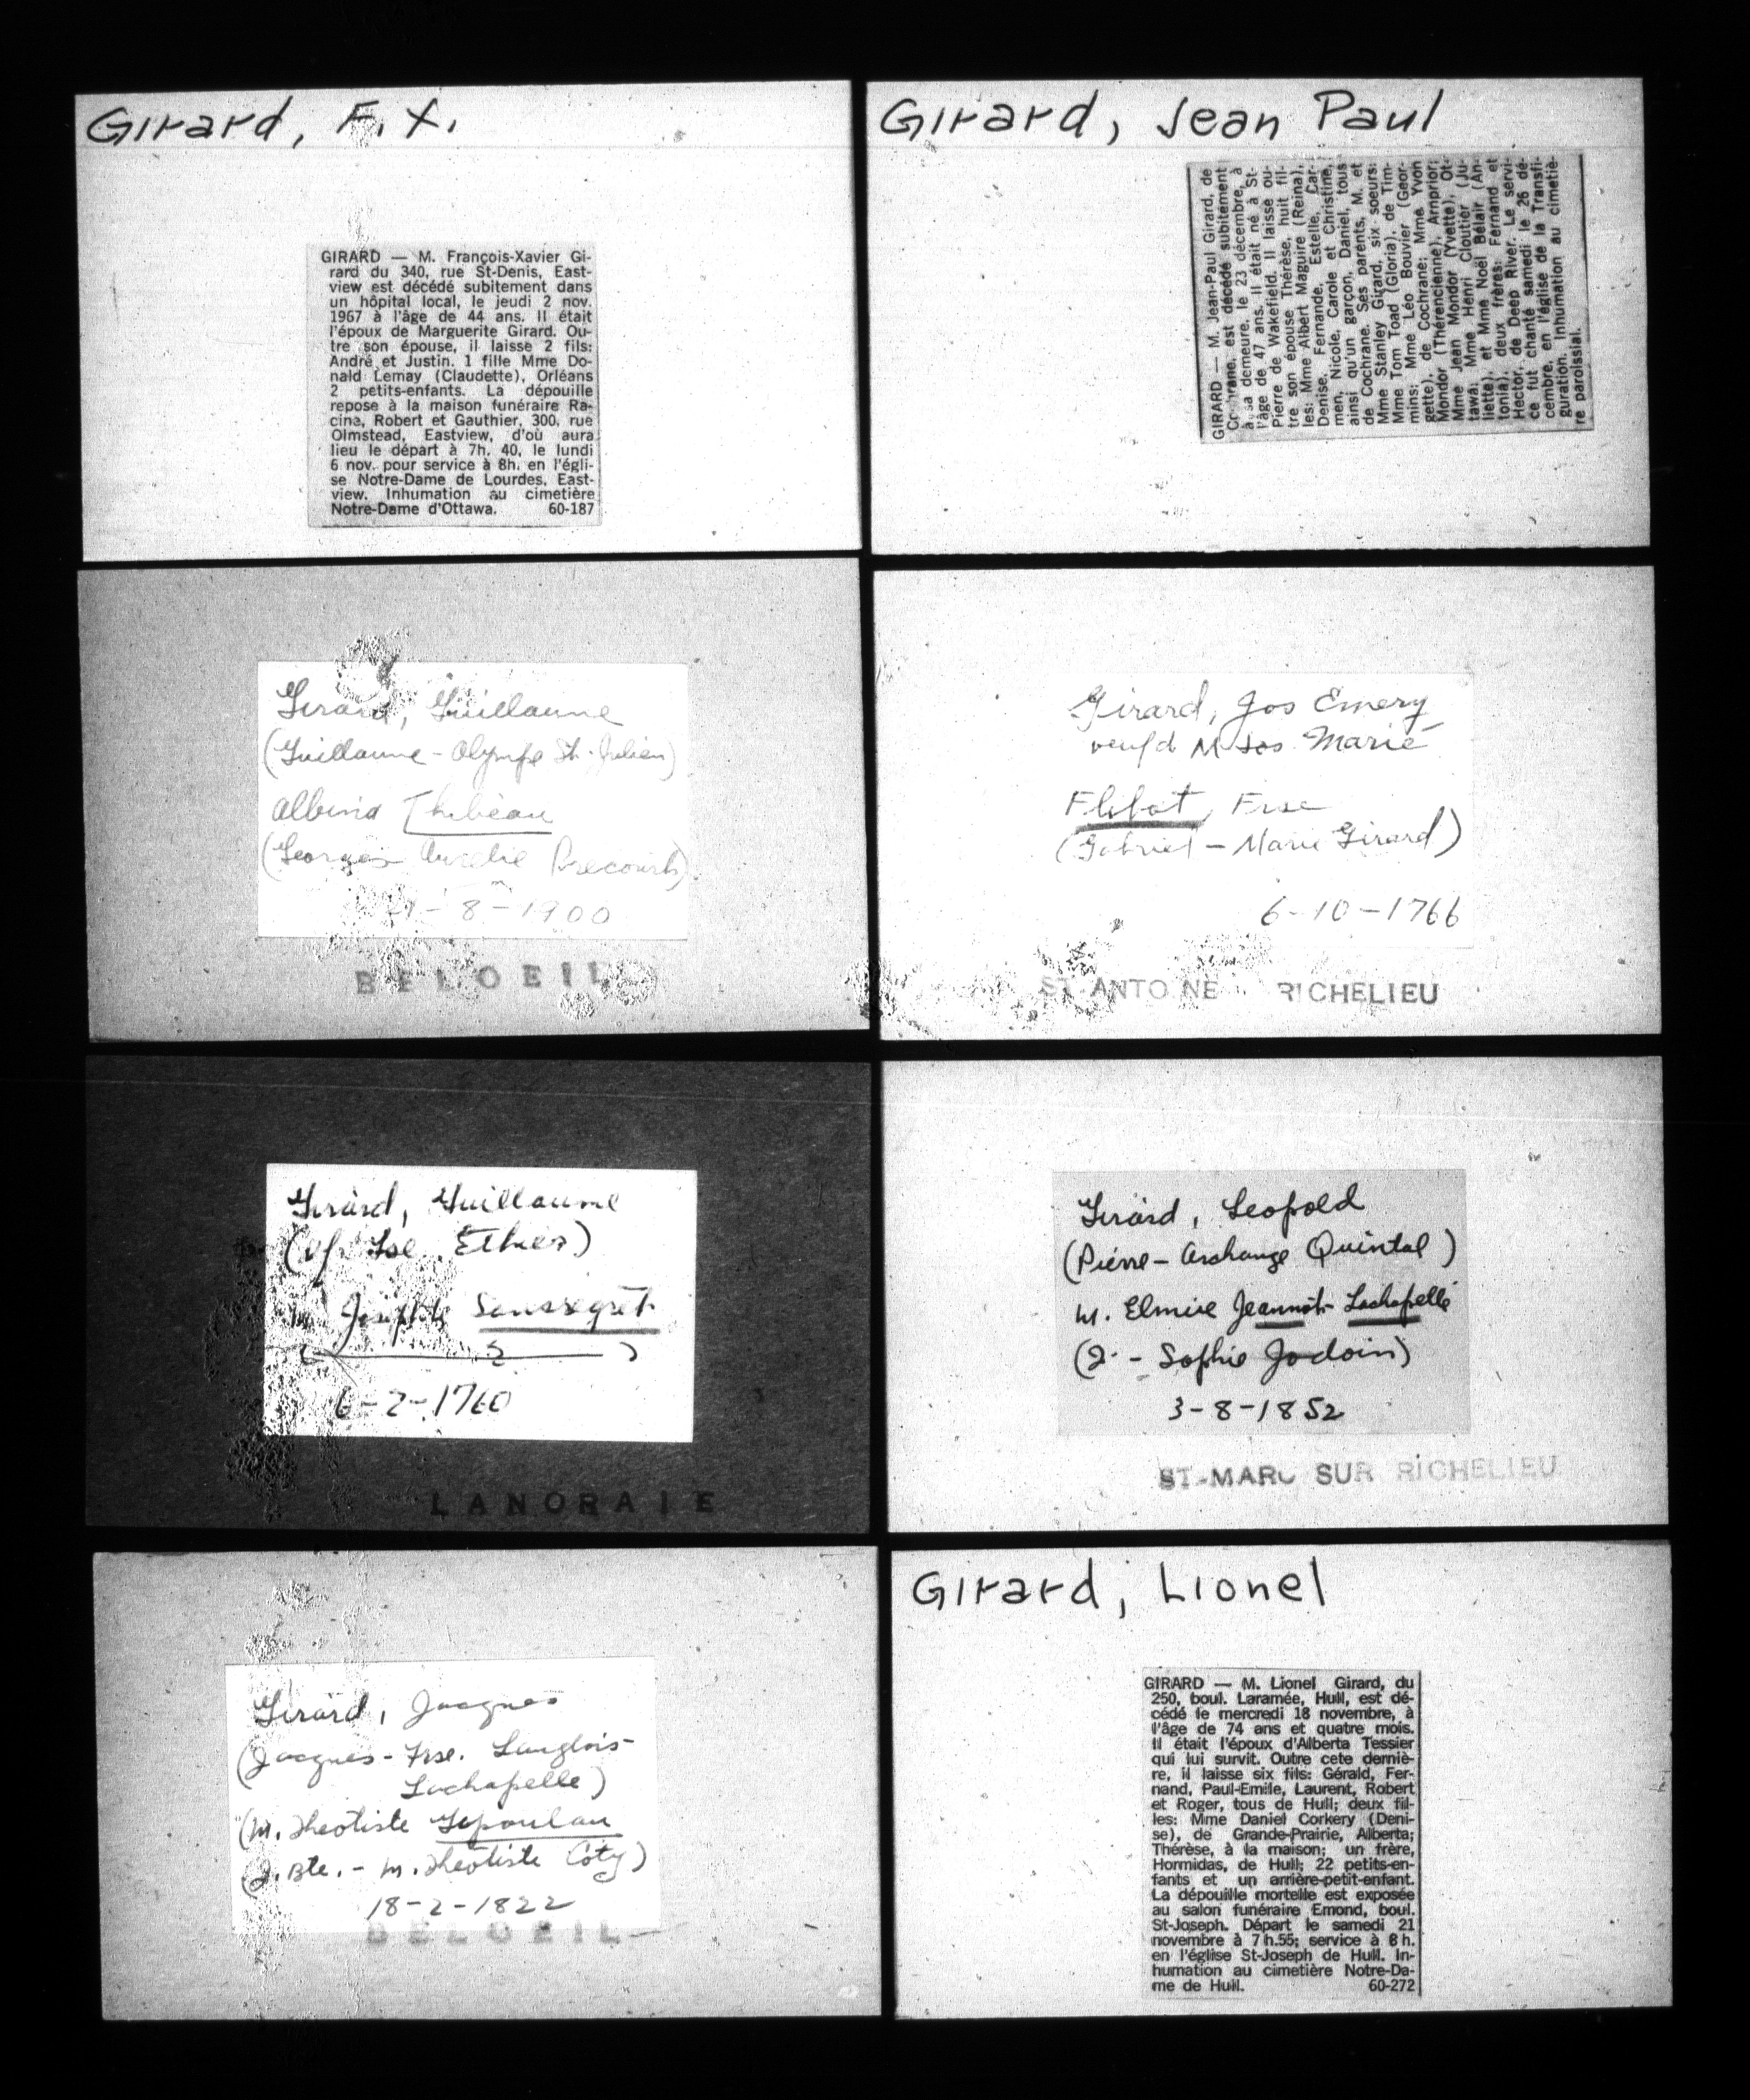 Girard, F. X.
GIRARD — M. François-Xavier Gi-
rard du 340, rue St-Denis, East-
view est décédé subitement dans
un hôpital local, le jeudi 2 nov.
1967 à l'âge de 44 ans. Il était
l'époux de Marguerite Girard. Ou-
tre son épouse, il laisse 2 fils:
André et Justin. 1 fille Mme Do-
nald Lemay (Claudette), Orléans
2 petits-enfants. La dépouille
repose à la maison funéraire Ra-
cine, Robert et Gauthier, 300, rue
Olmstead, Eastview, d'où aura
lieu le départ à 7h. 40, le lundi
6 nov. pour service à 8h. en l'égli-
se Notre-Dame de Lourdes, East-
view. Inhumation au cimetière
Notre-Dame d'Ottawa. 60-187
Girard, Jean Paul
GIRARD — M. Jean-Paul Girard, de
Cochrane, est décédé subitement
à sa demeure, le 23 décembre, à
l'âge de 47 ans. Il était né à St-
Pierre de Wakefield. Il laisse ou-
tre son épouse Thérèse, huit fil-
les: Mme Albert Maguire (Reina),
Denise, Fernande, Estelle, Car-
men, Nicole, Carole et Christine,
ainsi qu'un garçon, Daniel, tous
de Cochrane. Ses parents, M. et
Mme Stanley Girard, six soeurs:
Mme Tom Toad (Gloria), de Tim-
mins; Mme Léo Bouvier (Geor-
gette), de Cochrane; Mme Yvon
Mondor (Thérencienne), Arnprior;
Mme Jean Mondor (Yvette), Ot-
tawa; Mme Henri Cloutier (Ju-
liette), et Mme Noël Bélair (An-
tonia), deux frères: Fernand et
Hector, de Deep River. Le servi-
ce fut chanté samedi le 26 dé-
cembre, en l'église de la Transfi-
guration. Inhumation au cimetiè-
re paroissial.
Girard, Guillaume
(Guillaume - Olympe St-Julien)
Albina Thibeau
(Georges Aurelie Precourt)
-8-1900
BELOEIL
Girard, Jos Emery
veuf d M Jos Marie
Flibot, Frse
(Gabriel - Marie Girard)
6-10-1766
ST ANTOINE RICHELIEU
Girard, Guillaume
(vf Ethier)
m. Josephte Sansregret
( ? )
6-2-1760
LANORAIE
Girard, Leopold
(Pierre - Archange Quintal)
m. Elmire Jeannot-Lachapelle
(J. - Sophie Jodoin)
3-8-1852
ST-MARC SUR RICHELIEU
Girard, Jacques
(Jacques - Frse. Langlois-
Lachapelle)
(M. Theotiste Lepoulau
(J. Bte. - M. Theotiste Coty)
18-2-1822
BELOEIL
Girard, Lionel
GIRARD — M. Lionel Girard, du
250, boul. Laramée, Hull, est dé-
cédé le mercredi 18 novembre, à
l'âge de 74 ans et quatre mois.
Il était l'époux d'Alberta Tessier
qui lui survit. Outre cete derniè-
re, il laisse six fils: Gérald, Fer-
nand, Paul-Emile, Laurent, Robert
et Roger, tous de Hull; deux fil-
les: Mme Daniel Corkery (Deni-
se), de Grande-Prairie, Alberta;
Thérèse, à la maison; un frère,
Hormidas, de Hull; 22 petits-en-
fants et un arrière-petit-enfant.
La dépouille mortelle est exposée
au salon funéraire Emond, boul.
St-Joseph. Départ le samedi 21
novembre à 7 h.55; service à 8 h.
en l'église St-Joseph de Hull. In-
humation au cimetière Notre-Da-
me de Hull. 60-272